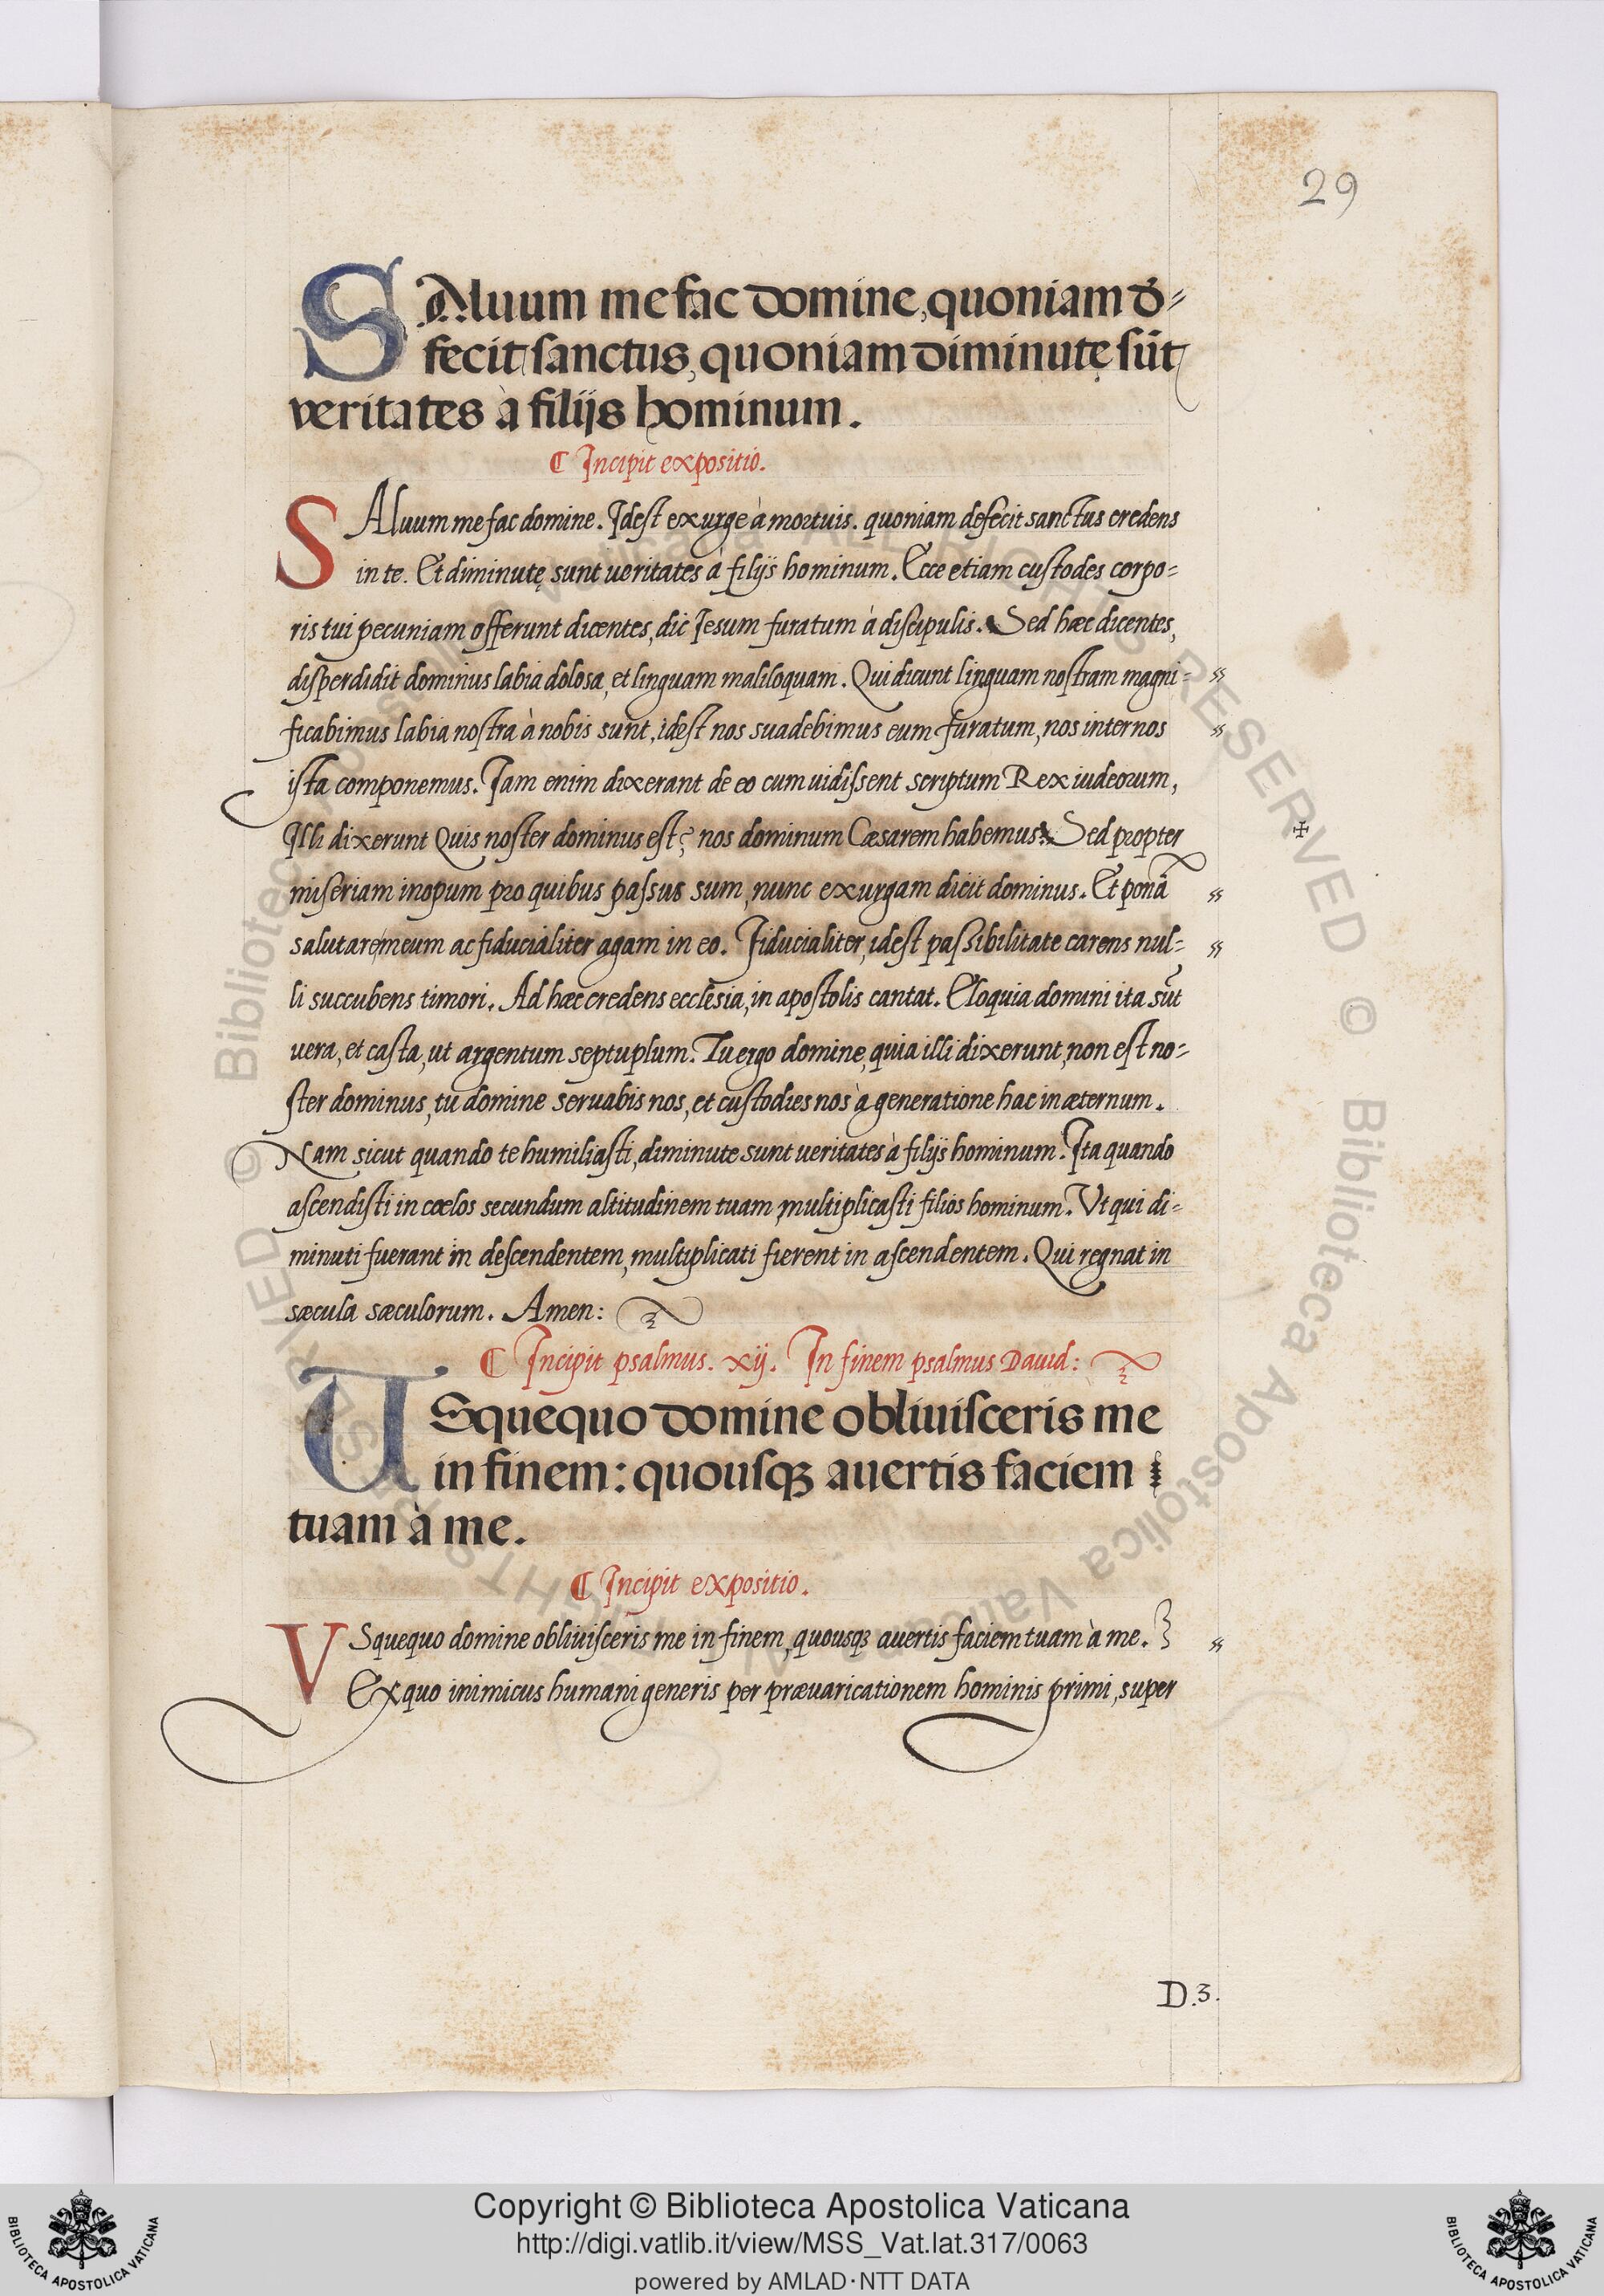 29
SAluum me fac domine, quoniam dē=
fecit sanctus, quoniam diminutę sūt
veritates à filijs hominum.
¶ Incipit expositio.
SAluum me fac domine. Idest exurge à mortuis. quoniam defecit sanctus credens
in te. Et diminutę sunt ueritates à filijs hominum. Ecce etiam custodes corpo=
ris tui pecuniam offerunt dicentes, dic Iesum furatum à discipulis. Sed hæc dicentes,
disperdidit dominus labia dolosa, et linguam maliloquam. Qui dicunt linguam nostram magni=
ficabimus labia nostra à nobis sunt, idest nos suadebimus eum furatum, nos inter nos
ista componemus. Iam enim dixerant de eo cum uidissent scriptum Rex iudeorum,
Illi dixerunt Quis noster dominus est? nos dominum Cæsarem habemus. Sed propter
miseriam inopum pro quibus passus sum, nunc exurgam dicit dominus. Et ponā
salutare meum ac fiducialiter agam in eo. Fiducialiter, idest passibilitate carens nul=
li succubens timori. Ad hæc credens ecclesia, in apostolis cantat. Eloquia domini ita sūt
uera, et casta, ut argentum septuplum. Tu ergo domine, quia illi dixerunt, non est no=
ster dominus, tu domine seruabis nos, et custodies nos à generatione hac in æternum.
Nam sicut quando te humiliasti, diminute sunt ueritates à filijs hominum. Ita quando
ascendisti in cœlos secundum altitudinem tuam multiplicasti filios hominum. Vt qui di=
minuti fuerant in descendentem, multiplicati fierent in ascendentem. Qui regnat in
sæcula sæculorum. Amen:
¶ Incipit psalmus. xij. In finem psalmus Dauid:
USquequo domine obliuisceris me
in finem: quousqꝫ auertis faciem
tuam à me.
¶ Incipit expositio.
VSquequo domine obliuisceris me in finem, quousqꝫ auertis faciem tuam à me.
Ex quo inimicus humani generis per præuaricationem hominis primi, super
D.3.
Copyright © Biblioteca Apostolica Vaticana
http://digi.vatlib.it/view/MSS_Vat.lat.317/0063
powered by AMLAD·NTT DATA